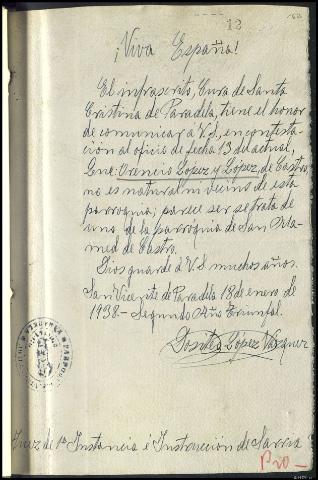 12
¡Viva España!
El infrascrito, Cura de Santa
Cristina de Paradela, tiene el honor
de comunicar á V.S., en contesta-
ción al oficio de fecha 13 del actual,
que Orencio López y López, de Castro,
no es natural ni vecino de esta
parroquia; parece ser se trata de
uno de la parroquia de San Ma-
med de Castro.
Dios guarde á V.S. muchos años.
San Vicente de Paradela 18 de enero de
1938.- Segundo Año Triunfal.
Dositeo López Vázquez
Juez de 1ª Instancia é Instrucción de Sarria